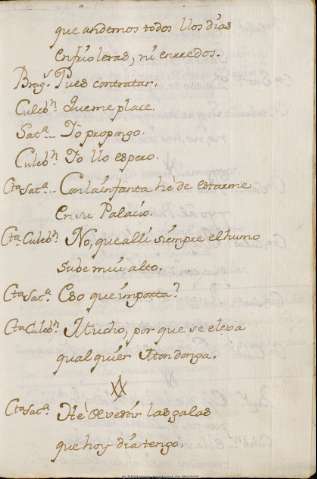 que andemos todos llos dias
en frioleras, ni enredos.
Brig.ª Pues contratar.
Culeb.ⁿ Que me place.
Sac.ª Yo propongo.
Culeb.ⁿ Yo llo espero.
Cta. Sac.ª Con la infanta hé de estarme
en su Palacio.
Cta. Culeb.ⁿ No, que alli siempre el humo
sube mui alto.
Cta. Sac.ª Eso que importa?
Cta. Culeb.ⁿ Mucho, por que se eleva
qualquier Mondonga.
Cta. Sac.ª Hé de vestir las galas
que hoy dia tengo.